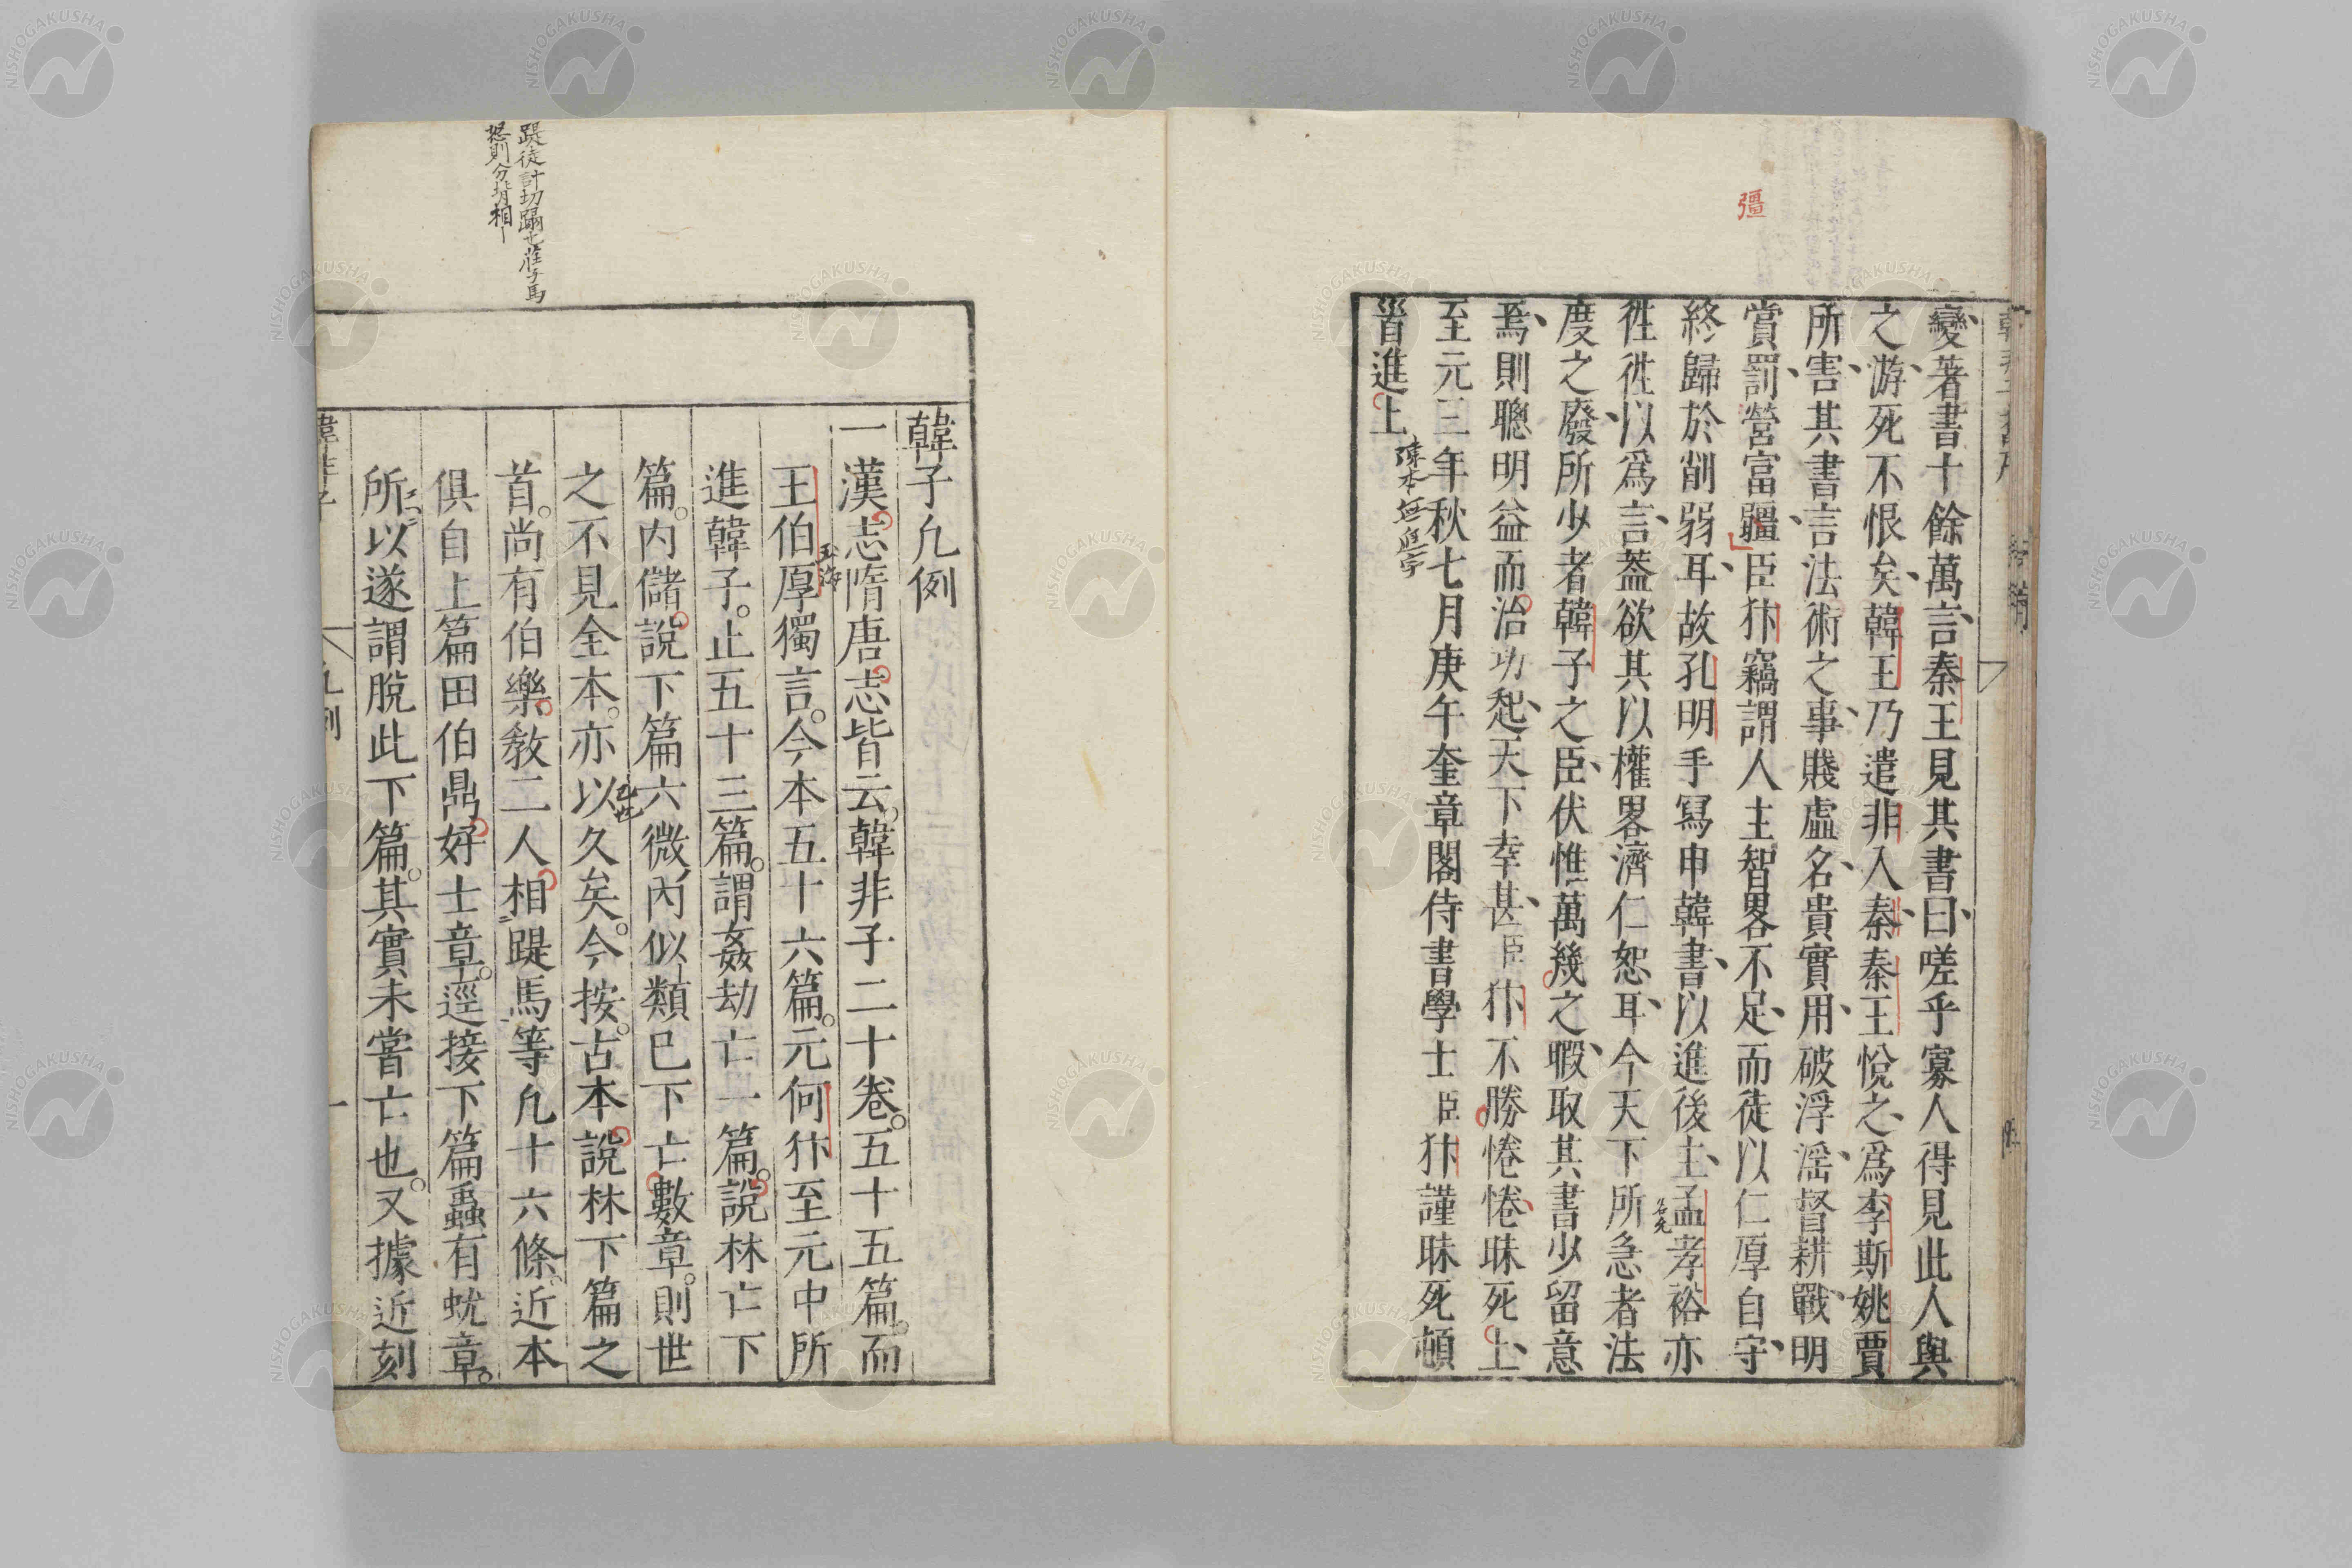 彊
變著書十餘萬言秦王見其書曰嗟乎寡人得見此人與
之游死不恨矣韓王乃遣非入秦秦王悅之爲李斯姚賈
所害其書言法術之事賤虛名貴實用破浮滛督耕戰明
賞罰營富疆臣犿竊謂人主智畧不足而徒以仁厚自守
終歸於削弱耳故孔明手冩申韓書以進後主孟孝裕亦
徃徃以爲言葢欲其以權畧濟仁恕耳今天下所急者法
度之廢所少者韓子之臣伏惟萬幾之暇取其書少留意
焉則聰明益而治功起天下幸甚臣犿不勝惓惓昧死上
至元三年秋七月庚午奎章閣侍書學士臣犿謹昧死頓
首進上
踶徒計切蹋也莊子馬
怒則分背相
韓子凡例
一漢志隋唐志皆云韓非子二十卷。五十五篇。而
王伯厚獨言。今本五十六篇。元何犿至元中所
玉海
進韓子。止五十三篇。謂姦劫亡一篇。說林亡下
篇。內儲說下篇六微內似類已下亡數章。則世
之不見全本。亦以久矣。今按。古本說林下篇之
首。尚有伯樂敎二人相踶馬等凡十六條近本
俱自上篇田伯鼎好士章。逕接下篇蟲有蚘章。
所以遂謂脫此下篇。其實未嘗亡也。又據近刻
凡例
一
NISHOGAKUSHA